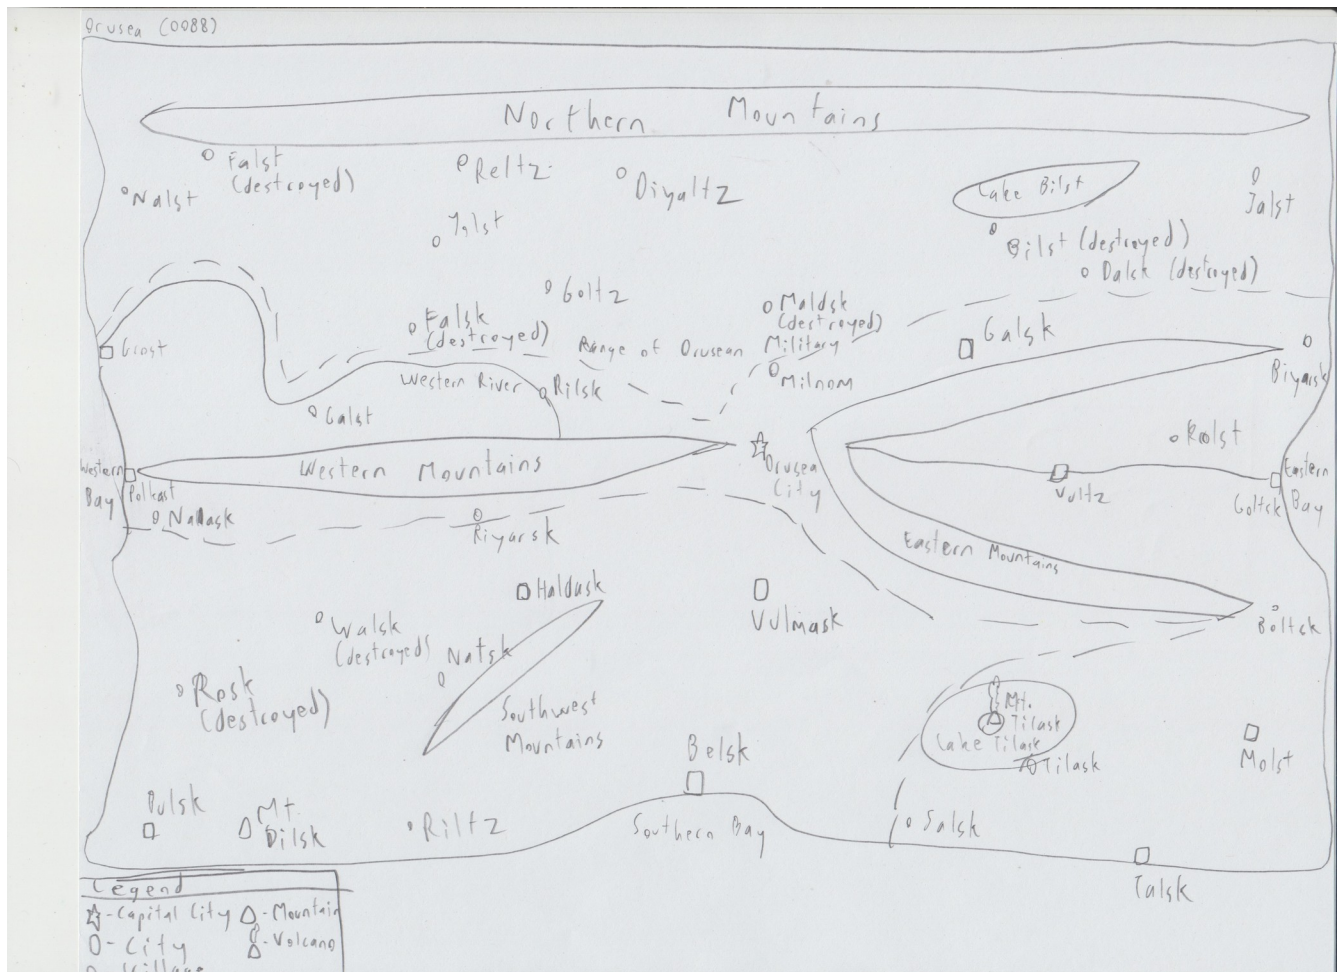 Orusea (0088)
Northern Mountains
Falst
(destroyed)
Nalst
Reltz
Diyaltz
Lake Bilst
Jalst
Bilst (destroyed)
Dalsk (destroyed)
Goltz
Falsk
(destroyed)
Maldsk
(destroyed)
Range of Orusean Military
Galsk
Grost
Milnom
Biyarsk
Western River
Rilsk
Galst
Rolst
Western Mountains
Orusea
City
Western
Bay
Polkast
Vultz
Goltsk
Eastern
Bay
Nalask
Riyarsk
Eastern Mountains
Haldusk
Vulmask
Boltsk
Walsk
(destroyed)
Natsk
Rosk
(destroyed)
Southwest
Mountains
Mt.
Tilask
Lake Tilask
Tilask
Belsk
Molst
Pulsk
Mt.
Dilsk
Riltz
Southern Bay
Salsk
Talsk
Legend
- Capital City
- Mountain
- City
- Volcano
- Village